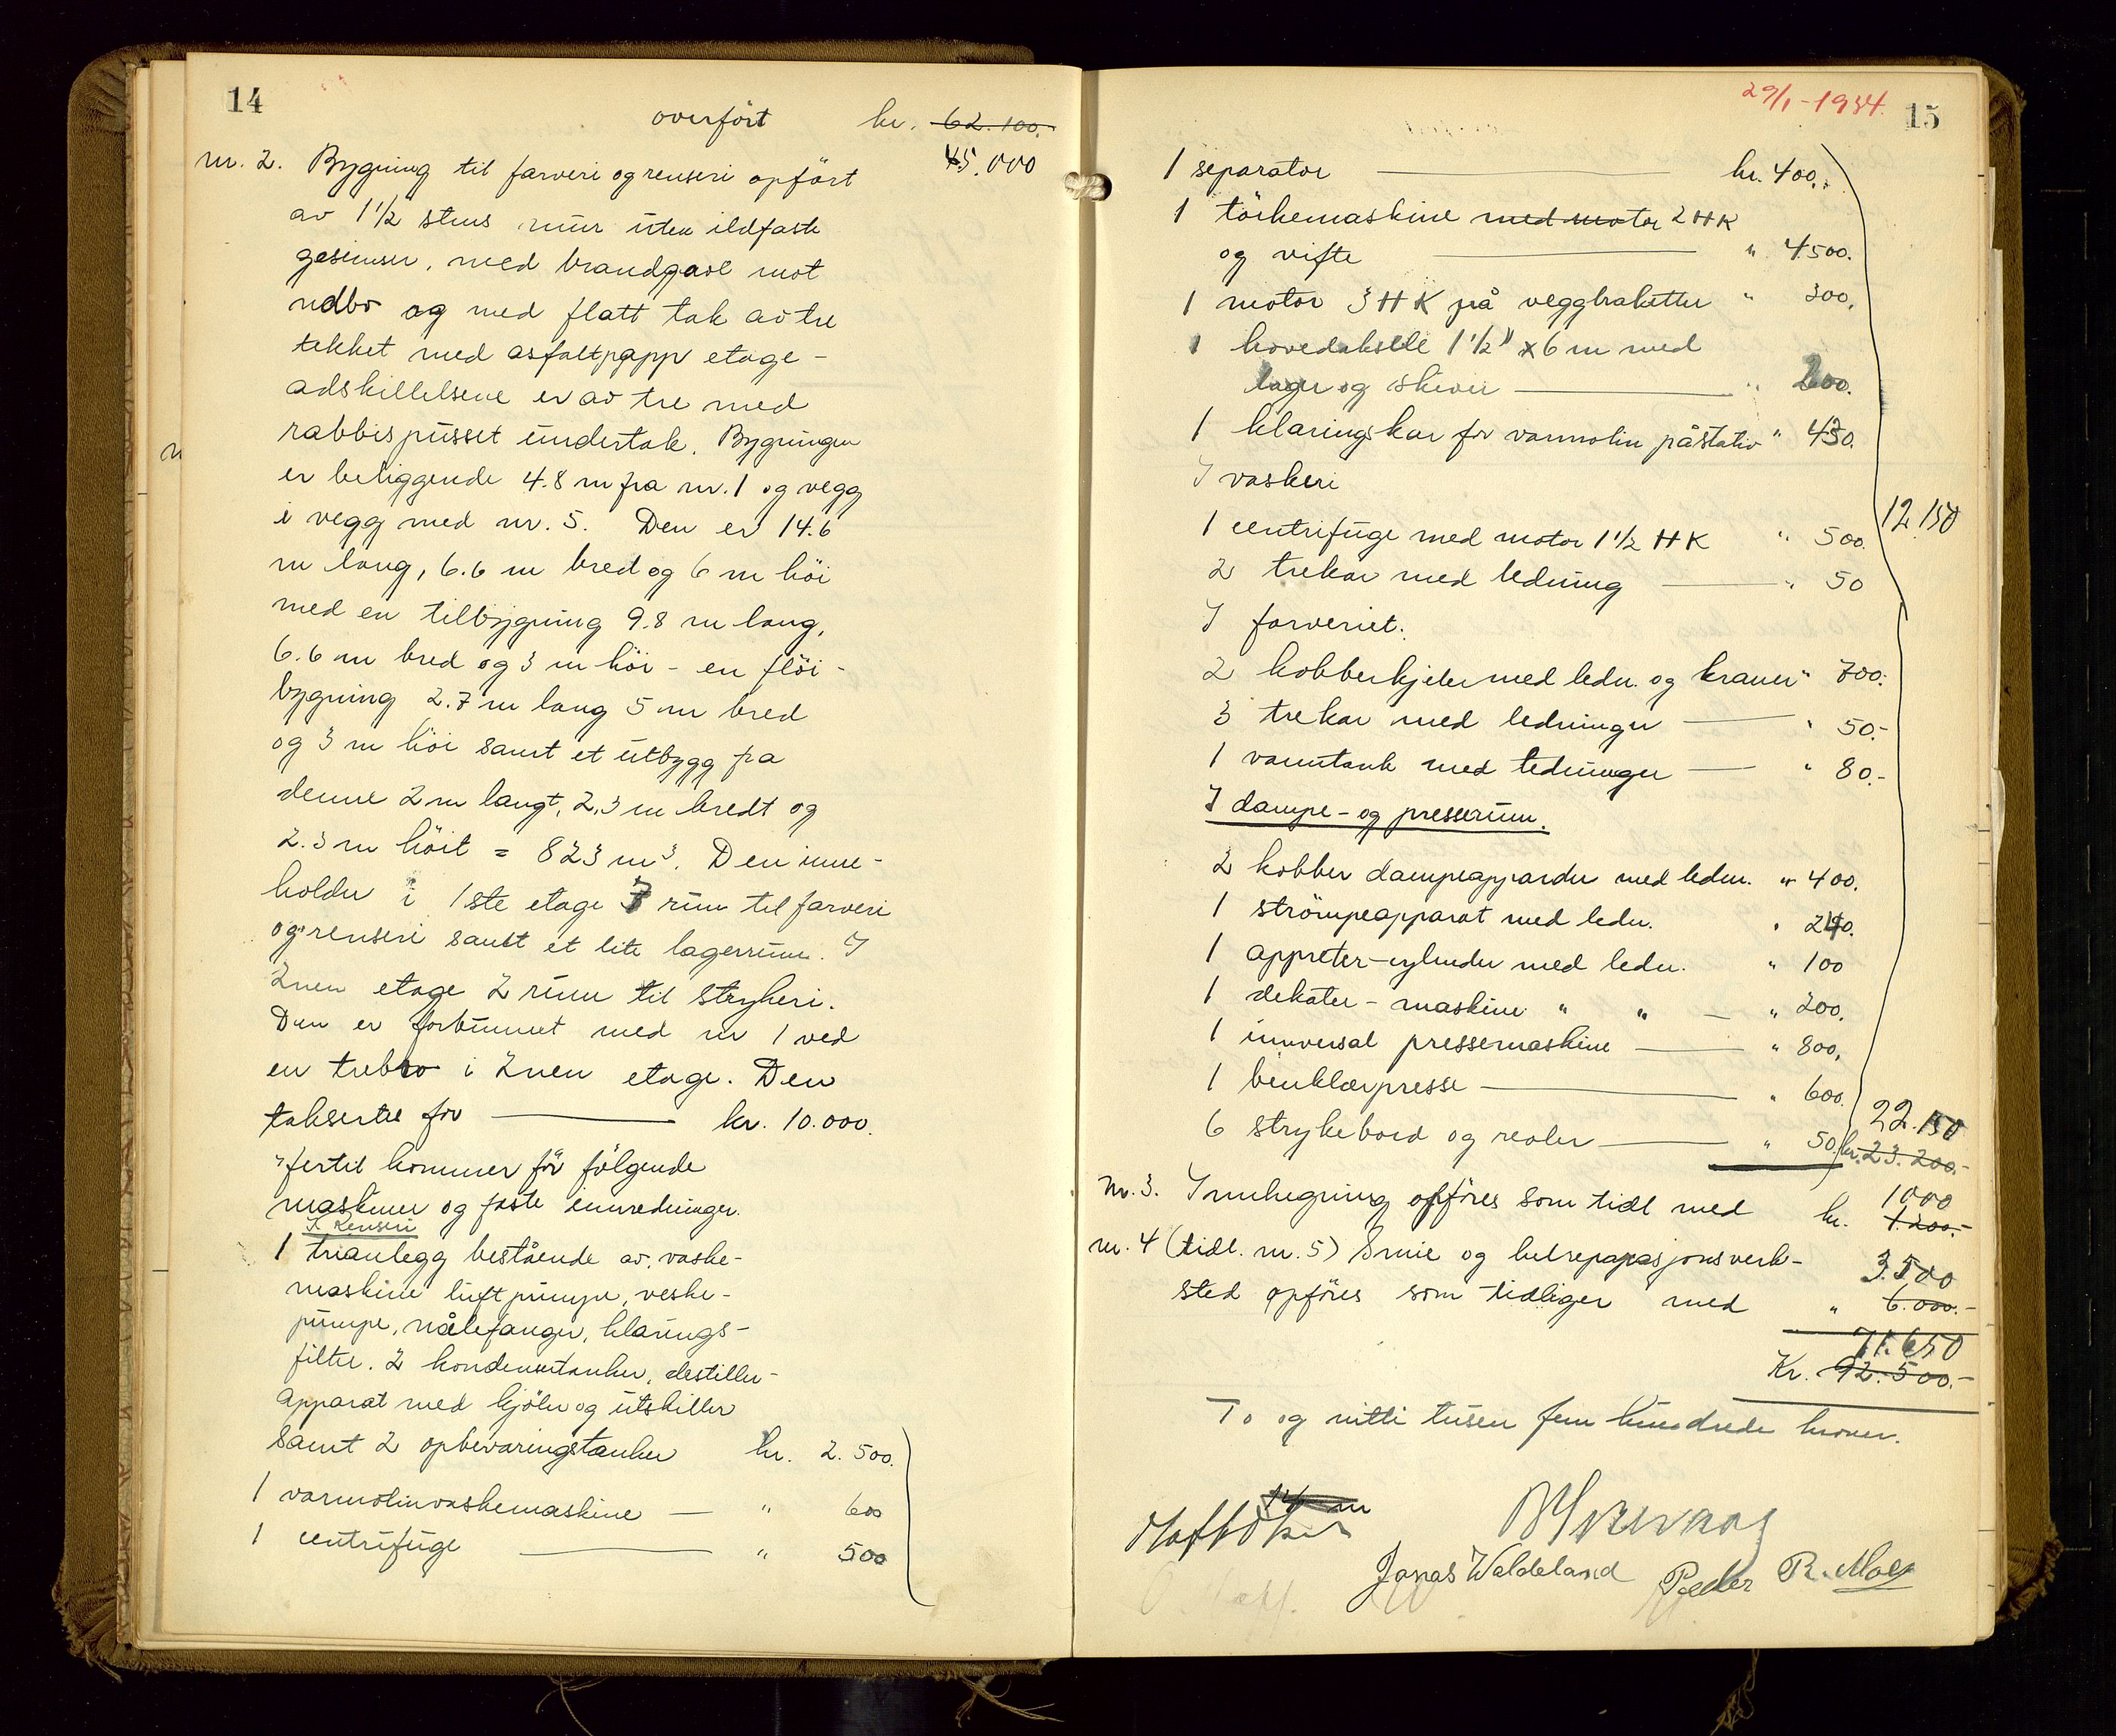 14
overført kr. 62.100.
45.000
nr. 2. Bygning til farveri og renseri opført
av 1 1/2 stens mur uten ildfaste
gesimser, med brandgavl mot
nabo og med flatt tak av tre
tekket med asfaltpapp etage-
adskillelsene er av tre med
rabbispusset undertak. Bygningen
er beliggende 4.8 m fra nr. 1 og vegg
i vegg med nr. 5. Den er 14.6
m lang, 6.6 m bred og 6 m høi
med en tilbygning 9.8 m lang,
6.6 m bred og 3 m høi - en fløi-
bygning 2.7 m lang 5 m bred
og 3 m høi samt et utbygg fra
denne 2 m langt, 2,3 m bredt og
2.3 m høit = 823 m³. Den inne-
holder i 1ste etage 7 rum til farveri
og renseri samt et lite lagerrum. I
2nen etage 2 rum til strykeri.
Den er forbunnet med nr 1 ved
en trebro i 2nen etage. Den
takseres for kr. 10.000.
hertil kommer for følgende
maskiner og faste innredninger.
I. Renseri
1 trianlegg bestående av, vaske-
maskine luftpumpe, veske-
pumpe, nålefanger, klarings-
filter. 2 kondenstanker, destiller-
apparat med kjøler og utskiller
samt 2 opbevaringstanker kr. 2.500.
1 varnolinvaskemaskine — " 600
1 centrifuge " 500
29/1-1934.
15
1 separator kr. 400.
1 tørkemaskine med motor 2 HK
og vifte " 4500.
1 motor 3 HK på veggbraketter " 300.
1 hovedaksel 1 1/2" x 6 m med
lager og skiver " 200.
1 klaringskar for varnolin på stativ " 450.
I vaskeri
12.150
1 centrifuge med motor 1 1/2 HK " 500.
2 trekar med ledning " 50
I farveriet.
2 kobberkjeler med ledn. og kraner " 700.
3 trekar med ledninger " 50.-
1 vanntank med ledninger " 80.-
I dampe- og presserum.
2 kobber dampeapparater med ledn. " 400.
1 strømpeapparat med ledn. " 240.
1 appreter-cylinder med ledn. " 100
1 dekater-maskine " " — " 200.
1 universal pressemaskine " 800.
1 benklærpresse " 600.
22.150
6 strykebord og reoler " 50. kr. 23.200.-
1000
nr. 3. Innhegning opføres som tidl med kr. 1.200.-
nr. 4 (tidl. nr. 5) Smie og hulreparasjonsverk-
3.500
sted opføres som tidliger med " 6.000.-
71.650
Kr. 92.500.-
To og nitti tusen fem hundrede kroner.
Jonas Waldeland Peder R. Moe